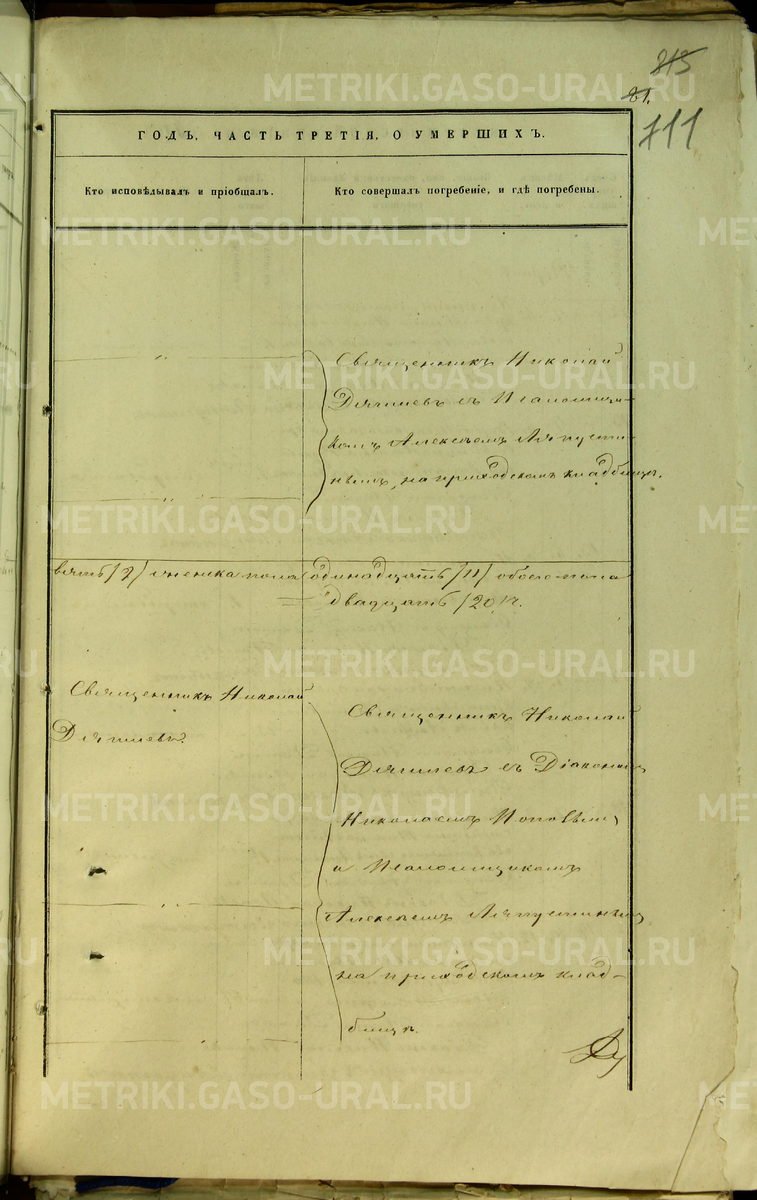 813
81.
711
ГОДЪ, ЧАСТЬ ТРЕТІЯ, О УМЕРШИХЪ.
Кто исповѣдывалъ и пріобщалъ.
Кто совершалъ погребеніе, и гдѣ погребены.
Священникъ Николай
съ Псаломщи-
комъ Алексѣемъ Ляпусти-
нымъ, на приходскомъ кладбищѣ.
вять /9/ женска пола одинадцать /11/ обоего пола
двадцать /20/ ч.
Священникъ Николай
Священникъ Николай
съ Діакономъ
Николаемъ Поповымъ,
и Псаломщикомъ
Алексѣемъ Ляпустинымъ
на приходскомъ клад-
бищѣ.
METRIKI.GASO-URAL.RU